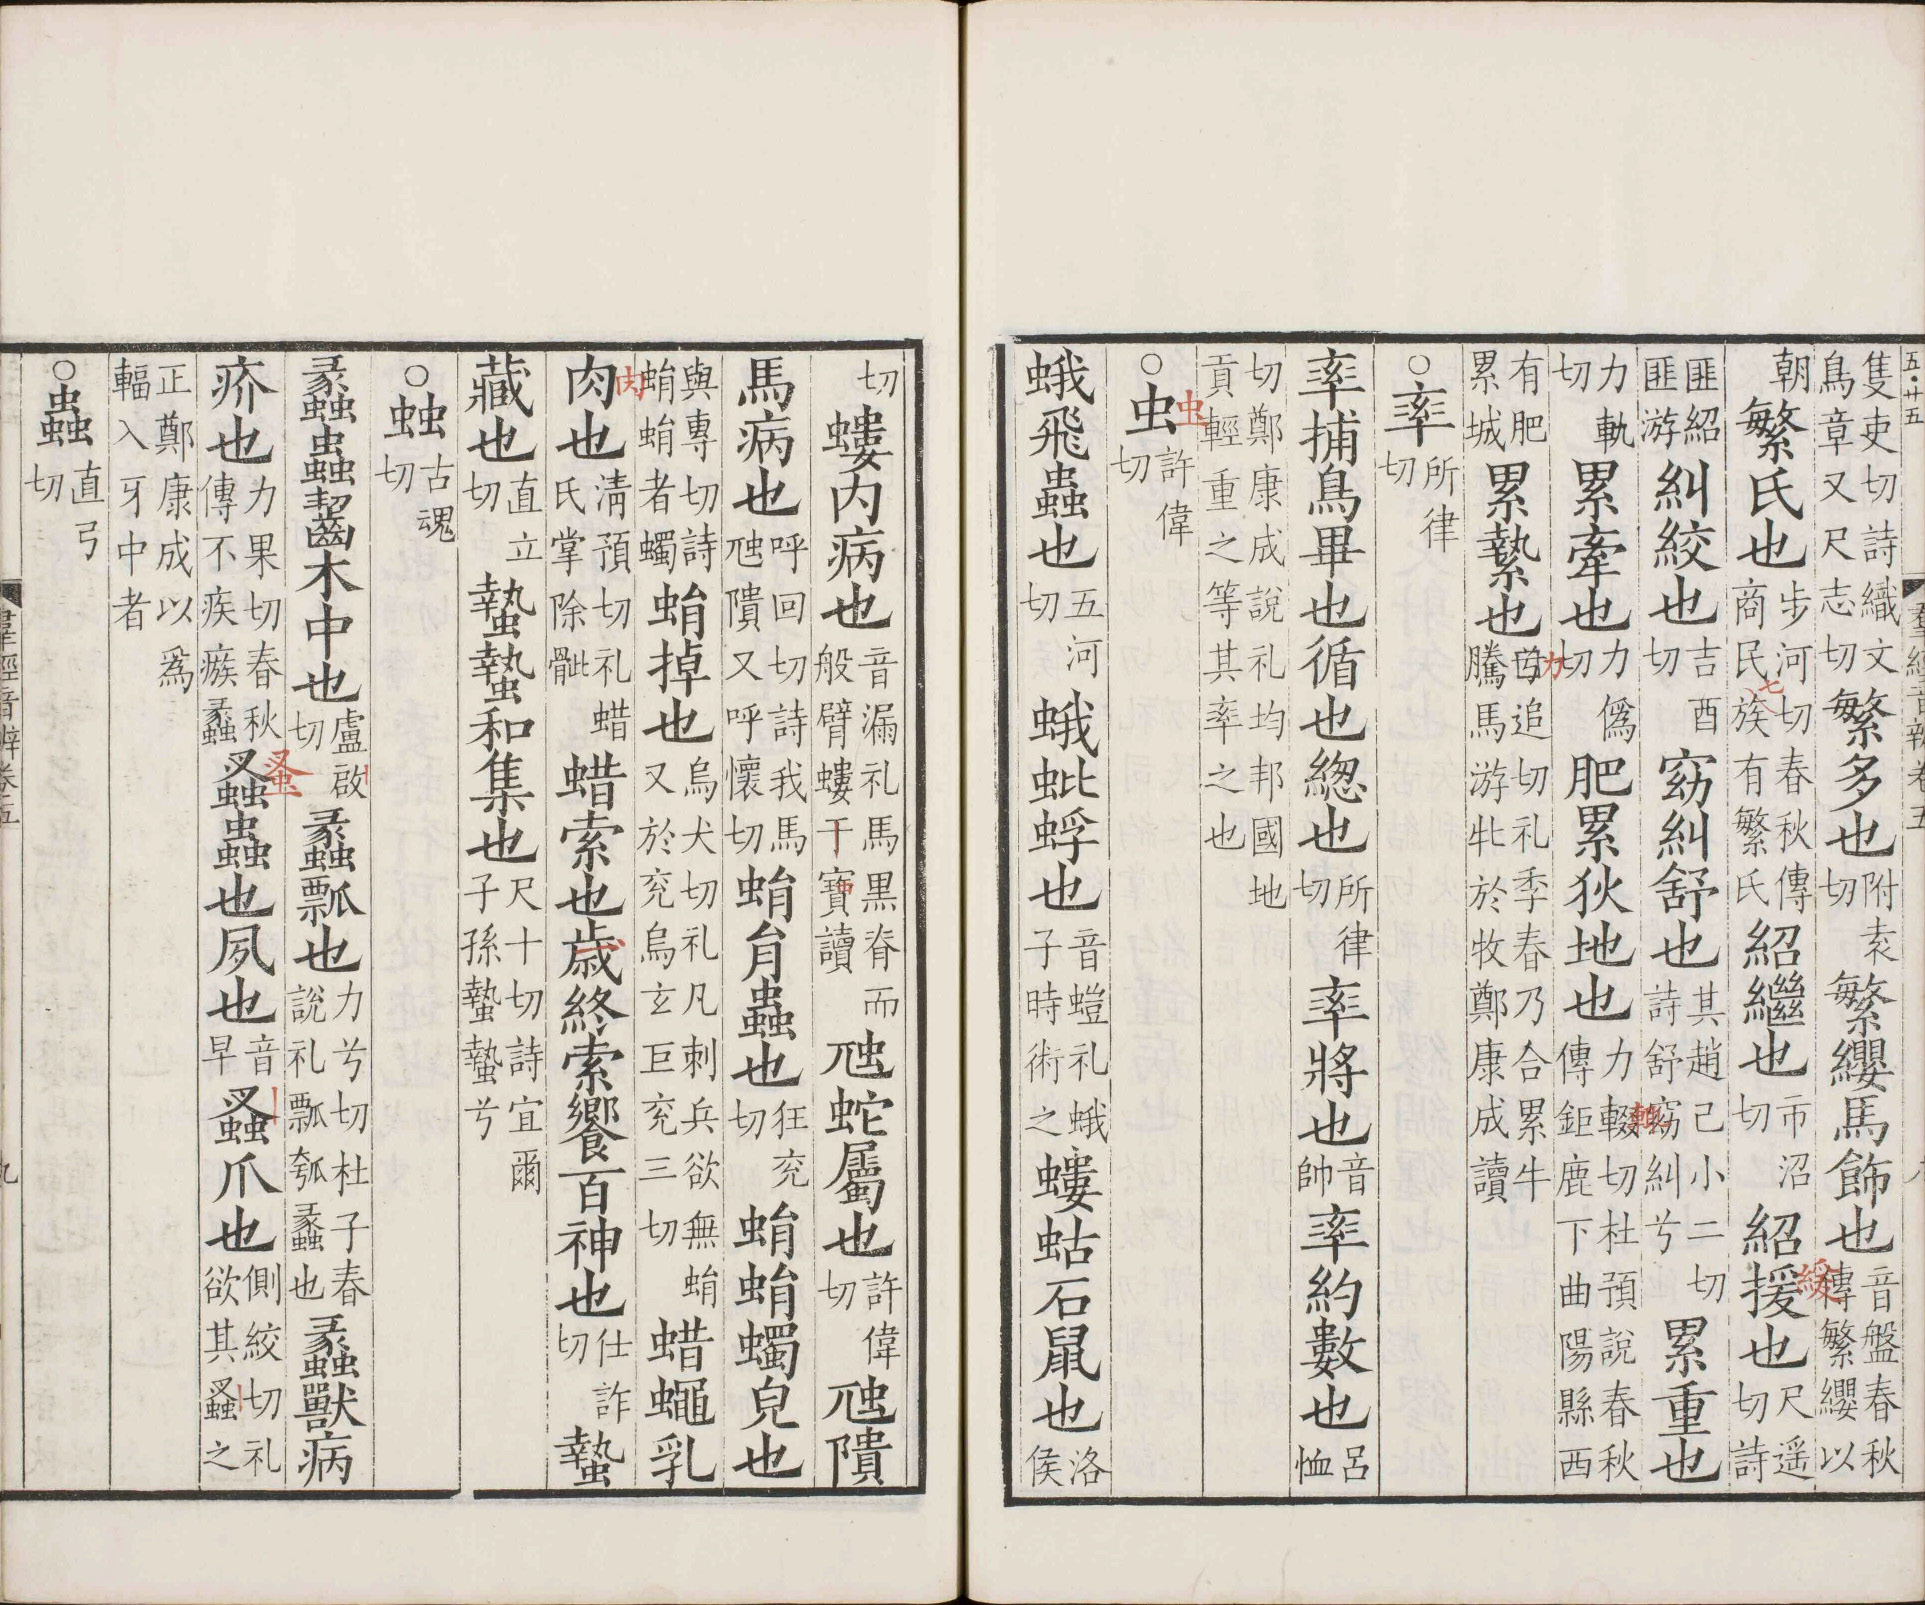 五·廿五
羣經音辨卷五
隻吏切詩織文鳥章又尺志切繁多也附袁切繁纓馬飾也音盤春秋傳繁纓以
朝繁氏也步河切春秋傳商民七族有繁氏紹繼也市沼切紹援也尺遥切詩
綬
匪紹匪游糾絞也吉酉切窈糾舒也其趙己小二切詩舒窈糾兮累重也
力軌切累牽也力僞切肥累狄地也力輟切杜預說春秋傳鉅鹿下曲陽縣西
有肥累城累縶也力追切礼季春乃合累牛騰馬游牝於牧鄭康成讀
○率所律切
率捕鳥畢也循也緫也所律切率將也音帥率約數也呂恤
切鄭康成說礼均邦國地貢輕重之等其率之也
○虫許偉切
虫
蛾飛蟲也五河切蛾蚍蜉也音螘礼蛾子時術之螻蛄石鼠也洛侯
切螻内病也音漏礼馬黑脊而般臂螻干寶讀虺蛇屬也許偉切虺隤
馬病也呼回切詩我馬虺隤又呼懷切蜎肙蟲也狂兖切蜎蜎蠋皃也
與專切詩蜎蜎者蠋蜎掉也烏犬切礼凡刺兵欲無蜎又於兖烏玄巨兖三切蜡蠅乳
肉
肉也淸預切礼蜡氏掌除骴蜡索也歲終索饗百神也仕詐切蟄
藏也直立切蟄蟄和集也尺十切詩宜爾子孫蟄蟄兮
○䖵古魂切
蠡蟲齧木中也盧啟切蠡瓢也力兮切杜子春說礼瓢瓠蠡也蠡獸病
疥也力果切春秋傳不疾瘯蠡蚤蟲也夙也音早蚤爪也側絞切礼欲其蚤之
蚤
正鄭康成以爲輻入牙中者
○蟲直弓切
羣經音辨卷五
九